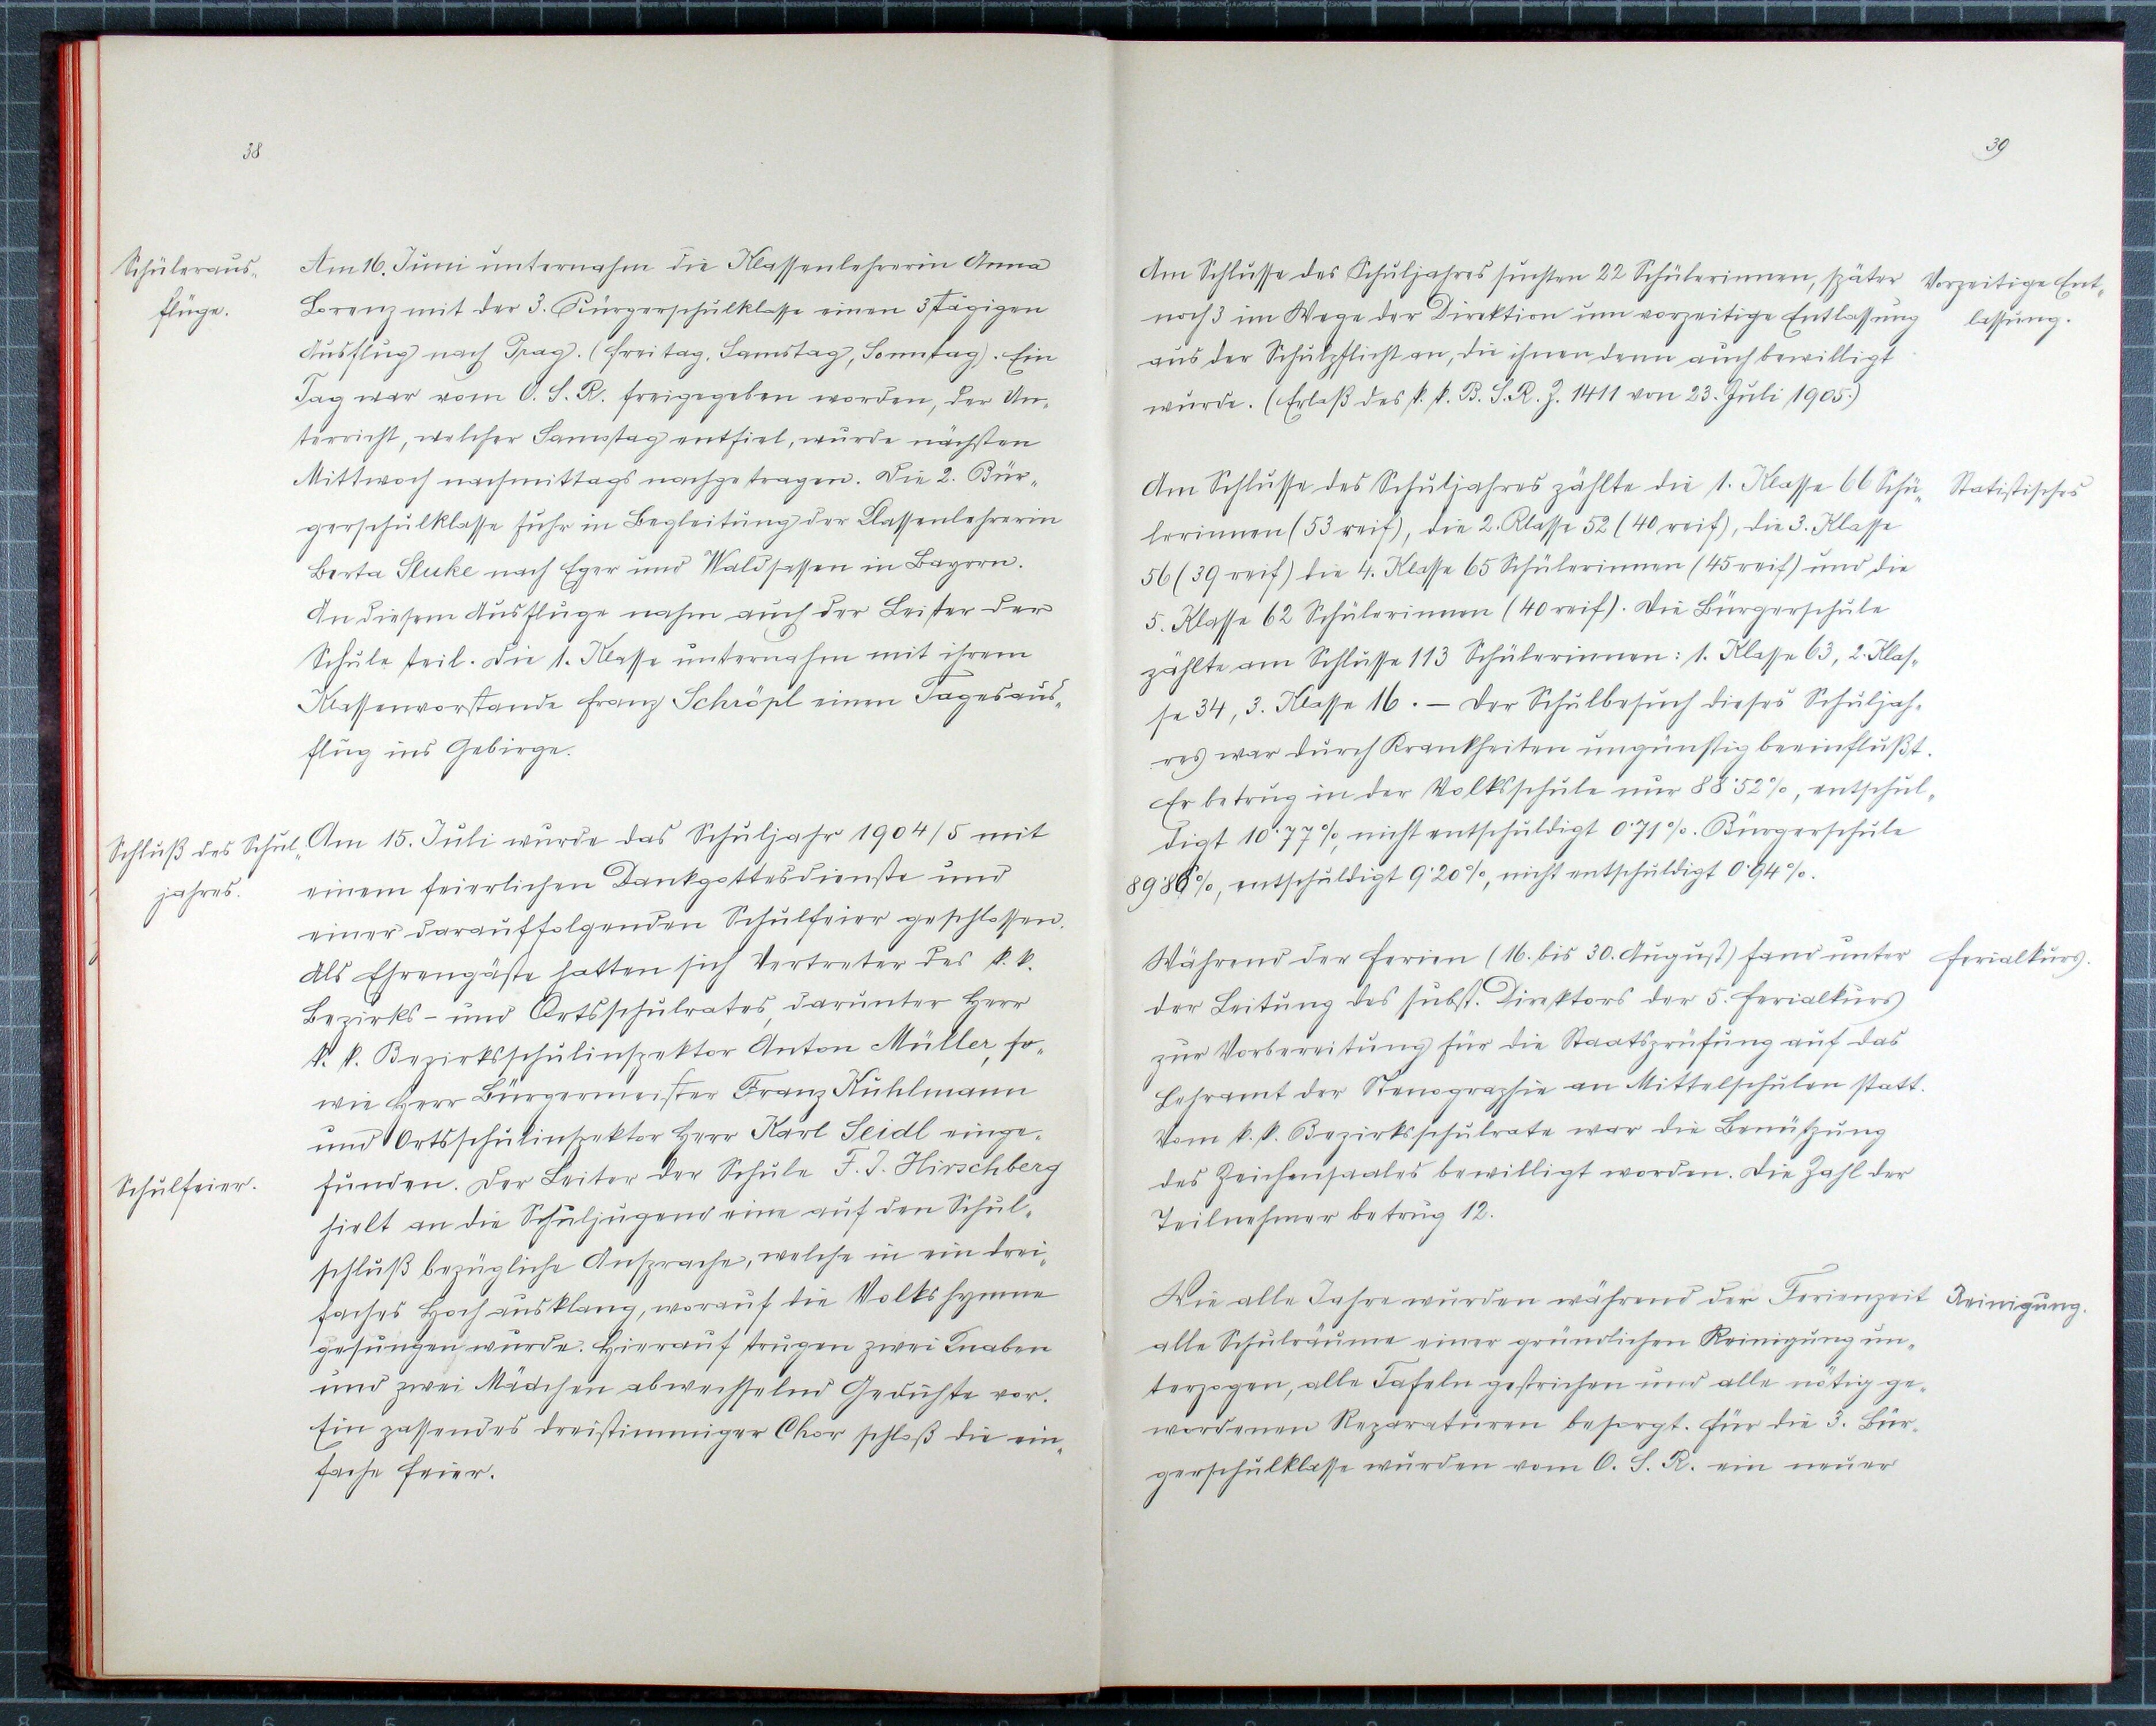 38
Schüleraus-
flüge.
Am 16. Juni unternahm die Klassenlehrerin Anna
Lorenz mit der 3. Bürgerschulklasse einen 3 tägigen
Ausflug nach Prag. (Freitag, Samstag, Sonntag). Ein
Tag war vom O. S. R. freigegeben worden, der Un-
terricht, welcher Samstag entfiel, wurde nächsten
Mittwoch nachmittags nachgetragen. Die 2. Bür-
gerschulklasse fuhr in Begleitung der Klassenlehrerin
Berta Sluke nach Eger und Waldsassen in Bayern.
An diesem Ausfluge nahm auch der Leiter der
Schule teil. Die 1. Klasse unternahm mit ihrem
Klassenvorstande Franz Schröpl einen Tagesaus-
flug ins Gebirge.
Schluß des Schul-
jahres.
Am 15. Juli wurde das Schuljahr 1904/5 mit
einem feierlichen Dankgottesdienste und
einer darauffolgenden Schulfeier geschlossen.
Als Ehrengäste hatten sich Vertreter des k. k.
Bezirks- und Ortsschulrates, darunter Herr
k. k. Bezirksschulinspektor Anton Müller, so-
wie Herr Bürgermeister Franz Kuhlmann
und Ortsschulinspektor Herr Karl Seidl einge-
Schulfeier.
funden. Der Leiter der Schule F. J. Hirschberg
hielt an die Schuljugend eine auf den Schul-
schluß bezügliche Ansprache, welche in ein drei-
faches Hoch ausklang, worauf die Volkshymne
gesungen wurde. Hierauf trugen zwei Knaben
und zwei Mädchen abwechselnd Gedichte vor.
Ein passendes dreistimmiger Chor schloß die ein-
fache Feier.
39
Am Schlusse des Schuljahres suchten 22 Schülerinnen, später
noch 3 im Wege der Direktion um vorzeitige Entlassung
aus der Schulpflicht an, die ihnen denn auch bewilligt
wurde. (Erlaß des k. k. B. S. R. Z. 1411 von 23. Juli 1905.)
Vorzeitige Ent-
lassung.
Am Schlusse des Schuljahres zählte die 1. Klasse 66 Schü-
lerinnen (53 reif), die 2. Klasse 52 (40 reif), die 3. Klasse
56 (39 reif) die 4. Klasse 65 Schülerinnen (45 reif) und die
5. Klasse 62 Schülerinnen (40 reif). Die Bürgerschule
zählte am Schlusse 113 Schülerinnen: 1. Klasse 63, 2. Klas-
se 34, 3. Klasse 16. – Der Schulbesuch dieses Schuljah-
res war durch Krankheiten ungünstig beeinflußt.
Er betrug in der Volksschule nur 88·52%, entschul-
digt 10·77%, nicht entschuldigt 0·71%. Bürgerschule
89·86%, entschuldigt 9·20%, nicht entschuldigt 0·94%.
Statistisches
Während der Ferien (16. bis 30. August) fand unter
der Leitung des subst. Direktors der 5. Ferialkurs
zur Vorbereitung für die Staatsprüfung auf das
Lehramt der Stenographie an Mittelschulen statt.
Vom k. k. Bezirksschulrate war die Benützung
des Zeichensaales bewilligt worden. Die Zahl der
Teilnehmer betrug 12.
Ferialkurs.
Wie alle Jahre wurden während der Ferienzeit
alle Schulräume einer gründlichen Reinigung un-
terzogen, alle Tafeln gestrichen und alle nötig ge-
wordenen Reparaturen besorgt. Für die 3. Bür-
gerschulklasse wurden vom O. S. R. ein neuer
Reinigung.